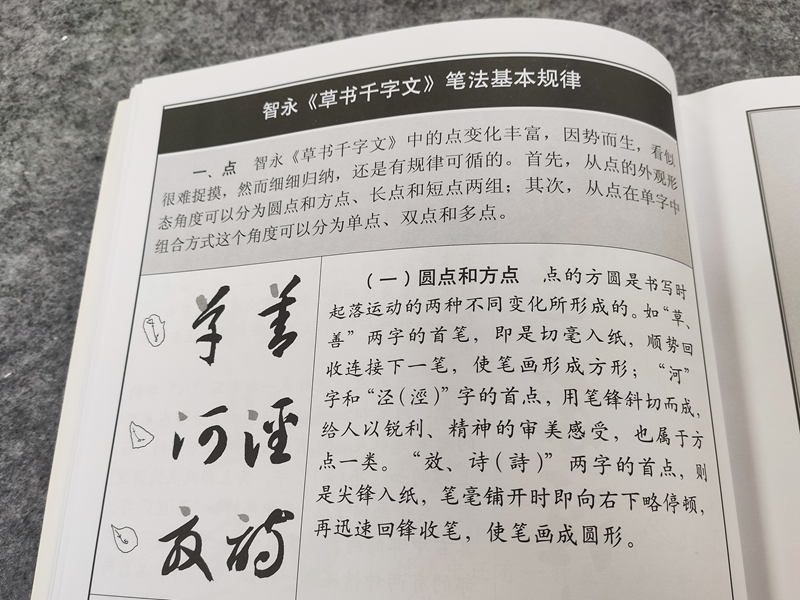 智永《草书千字文》笔法基本规律
一、点 智永《草书千字文》中的点变化丰富，因势而生，看似
很难捉摸，然而细细归纳，还是有规律可循的。首先，从点的外观形
态角度可以分为圆点和方点、长点和短点两组；其次，从点在单字中
组合方式这个角度可以分为单点、双点和多点。
草善
河泾
效诗
（一）圆点和方点 点的方圆是书写时
起落运动的两种不同变化所形成的。如“草、
善”两字的首笔，即是切毫入纸，顺势回
收连接下一笔，使笔画形成方形；“河”
字和“泾（涇）”字的首点，用笔锋斜切而成，
给人以锐利、精神的审美感受，也属于方
点一类。“效、诗（詩）”两字的首点，则
是尖锋入纸，笔毫铺开时即向右下略停顿，
再迅速回锋收笔，使笔画成圆形。